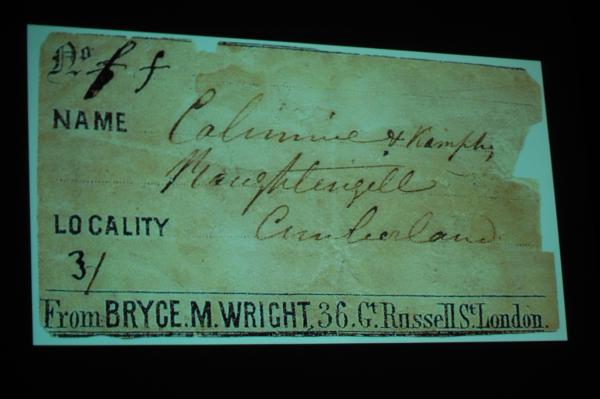 No f f
NAME Calimine & Kamph;
Naughtengill
LOCALITY Cumberland
3/
From BRYCE. M. WRIGHT, 36. Gt. Russell St. London.